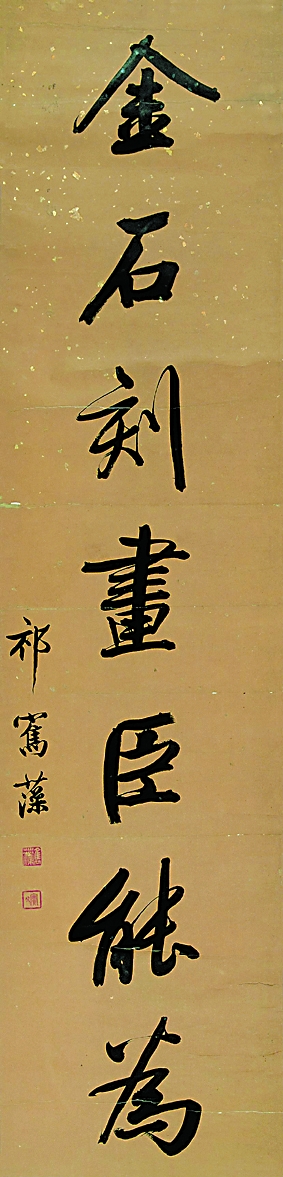 金石刻畫臣能為
祁寯藻